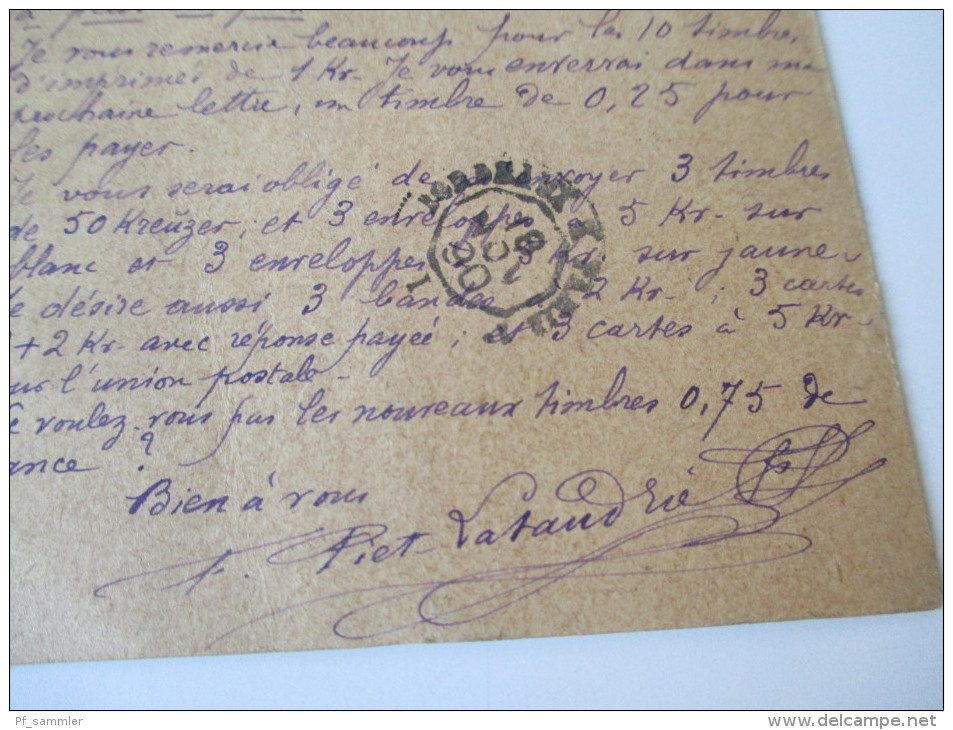 à peu
Je vous remercie beaucoup pour les 10 timbres
d'imprimés de 1 Kr. Je vous enverrai dans ma
prochaine lettre, un timbre de 0,25 pour
les payer.
Je vous serai obligé de envoyer 3 timbres
de 50 Kreuzer; et 3 enveloppes 5 Kr- sur
blanc et 3 enveloppes 5 Kr sur jaune-
Je désire aussi 3 bandes 2 Kr-; 3 cartes
+2 Kr- avec réponse payée; et 3 cartes à 5 Kr-
l'union postale-
voulez-vous pas les nouveaux timbres 0,75 de
ance ?
Bien à vous
F. Piet-Lataudrie
BORDEAUX
Pf_sammler
www.delcampe.net